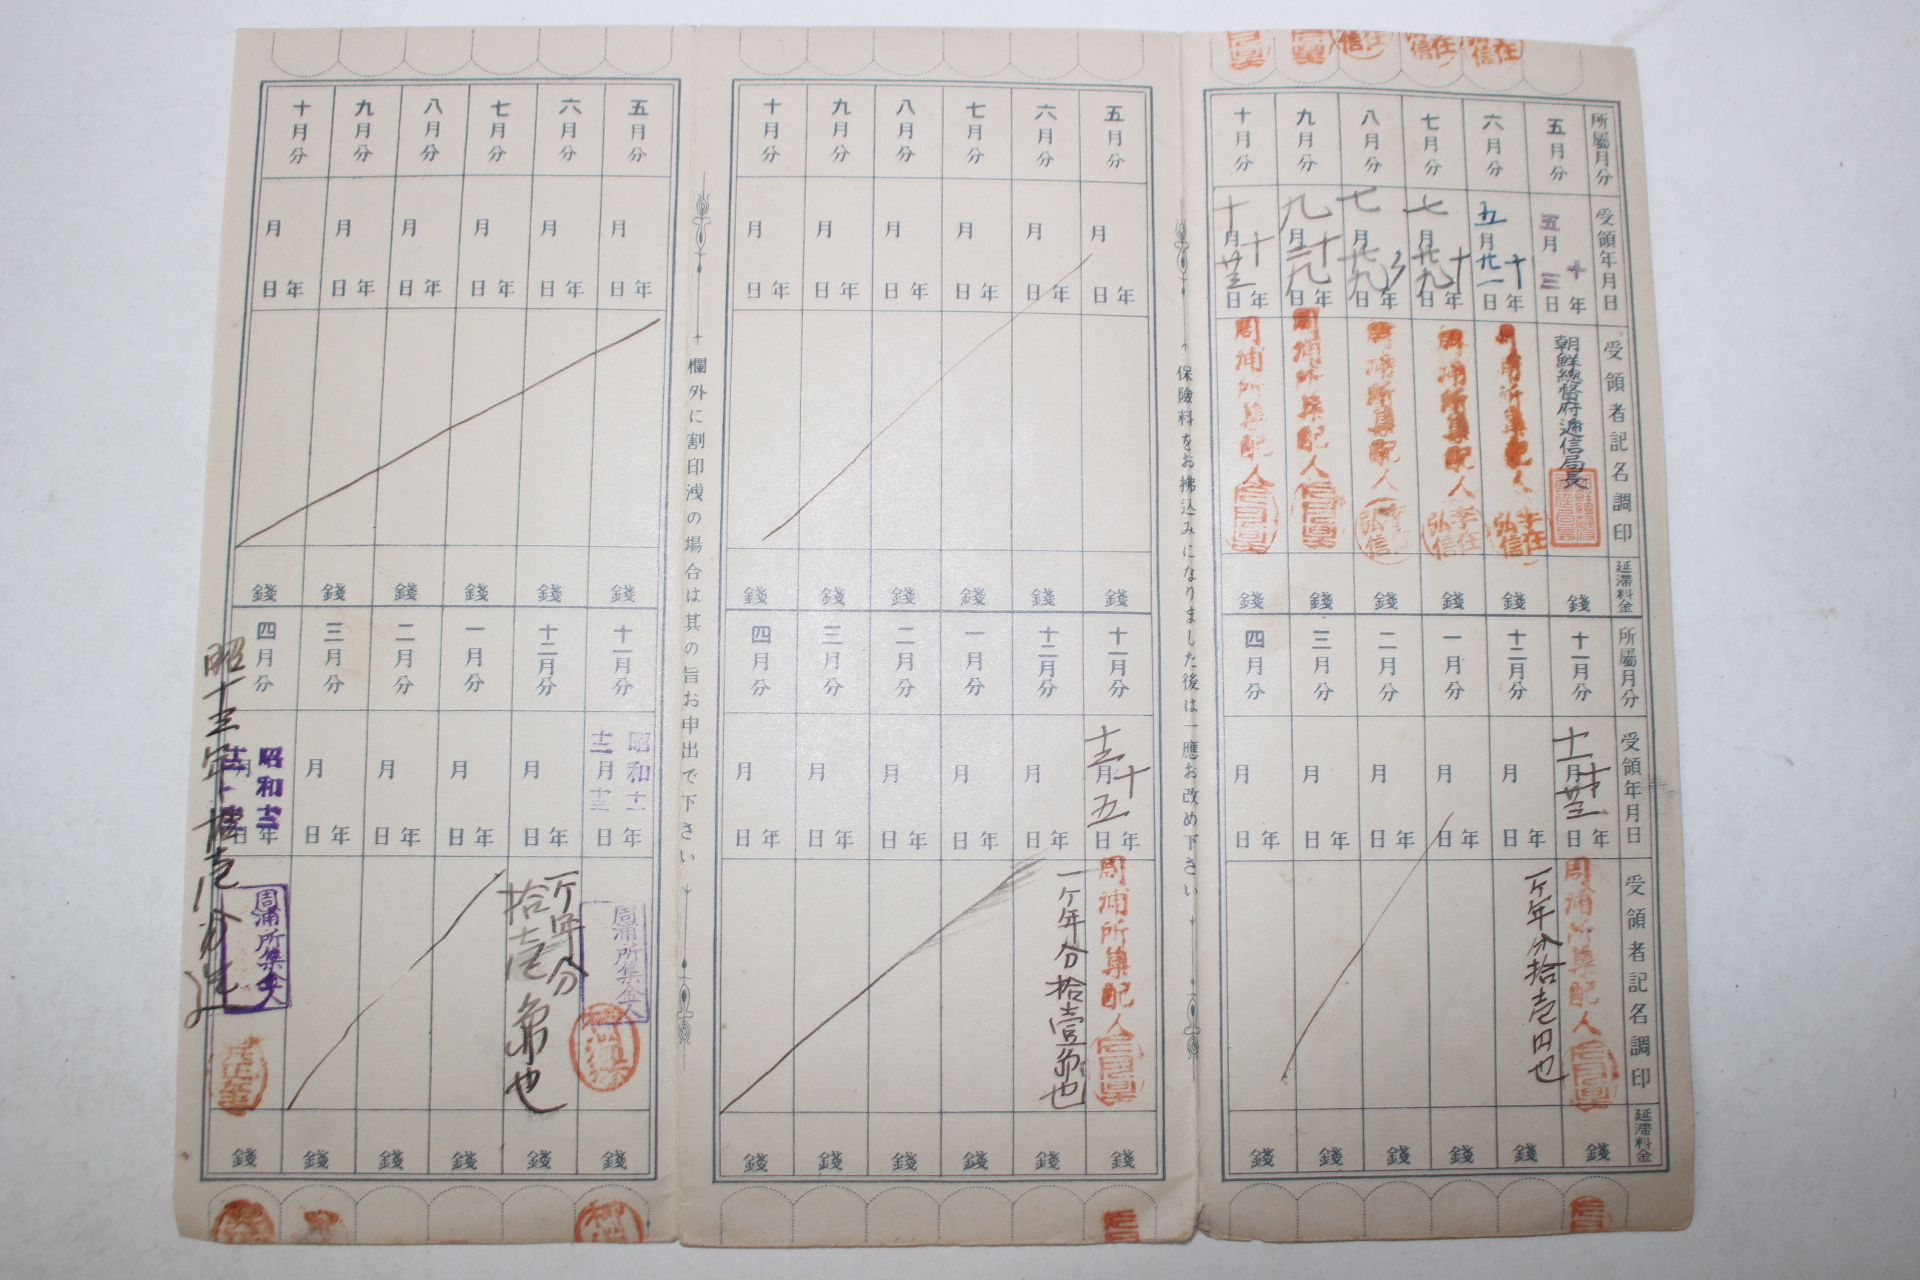 所屬月分
五月分
六月分
七月分
八月分
九月分
十月分
受領年月日
五月三日 十年
五月廿一日 十年
七月廿九日 十年
七月廿九日 年
九月二九日 十年
十月廿三日 十年
受領者記名調印
朝鮮總督府遞信局長
周浦所集配人 李在弘信
周浦所集配人 李在弘信
周浦所集配人
周浦所集配人
周浦所集配人
延滯料金
錢
錢
錢
錢
錢
錢
所屬月分
十一月分
十二月分
一月分
二月分
三月分
四月分
受領年月日
十一月廿三日 十年
月日 年
月日 年
月日 年
月日 年
月日 年
受領者記名調印
周浦所集配人
一ケ年分拾壱円也
延滯料金
錢
錢
錢
錢
錢
錢
保險料をお拂込みになりました後は一應お改め下さい
五月分
六月分
七月分
八月分
九月分
十月分
月日 年
月日 年
月日 年
月日 年
月日 年
月日 年
錢
錢
錢
錢
錢
錢
十一月分
十二月分
一月分
二月分
三月分
四月分
十二月五日 十年
月日 年
月日 年
月日 年
月日 年
月日 年
周浦所集配人
一ケ年分拾壹円也
錢
錢
錢
錢
錢
錢
欄外に割印洩の場合は其の旨お申出で下さい
五月分
六月分
七月分
八月分
九月分
十月分
月日 年
月日 年
月日 年
月日 年
月日 年
月日 年
錢
錢
錢
錢
錢
錢
十一月分
十二月分
一月分
二月分
三月分
四月分
昭和十二年
十二月十三日
月日 年
月日 年
月日 年
月日 年
昭和十三年
周浦所集金人
一ケ年分
拾壱円也
周浦所集金人
錢
錢
錢
錢
錢
錢